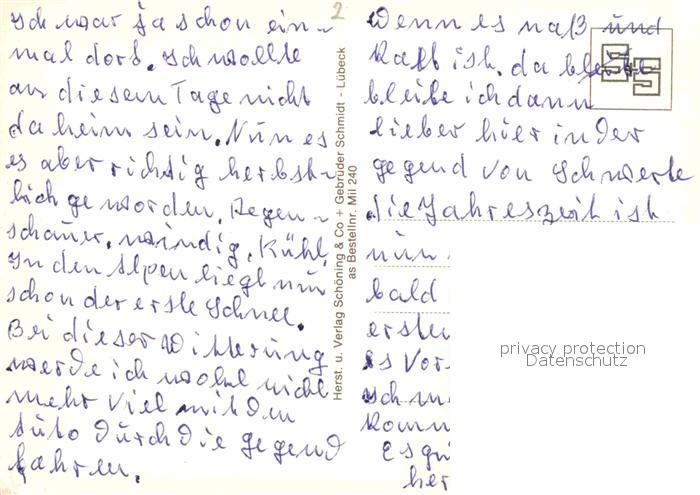 Ich war ja schon ein-
mal dort. Ich wollte
an diesem Tage nicht
daheim sein. Nun es
es aber richtig herbst-
lich geworden. Regen-
schauer, windig, Kühl,
In den Alpen liegt nun
schon der erste Schnee.
Bei dieser Witterung
werde ich wohl nicht
mehr viel mit dem
Auto durch die gegend
fahren.
2
Herst. u. Verlag Schöning & Co + Gebrüder Schmidt - Lübeck
als Bestellnr. Mil 240
Wenn es naß und
kalt ist, da
bleibe ich dann
lieber hier in der
gegend von Schwerte
die Jahreszeit ist
nun
bald
ersten
es Vor
ich
komm
Es grü
her
S+S
privacy protection
Datenschutz